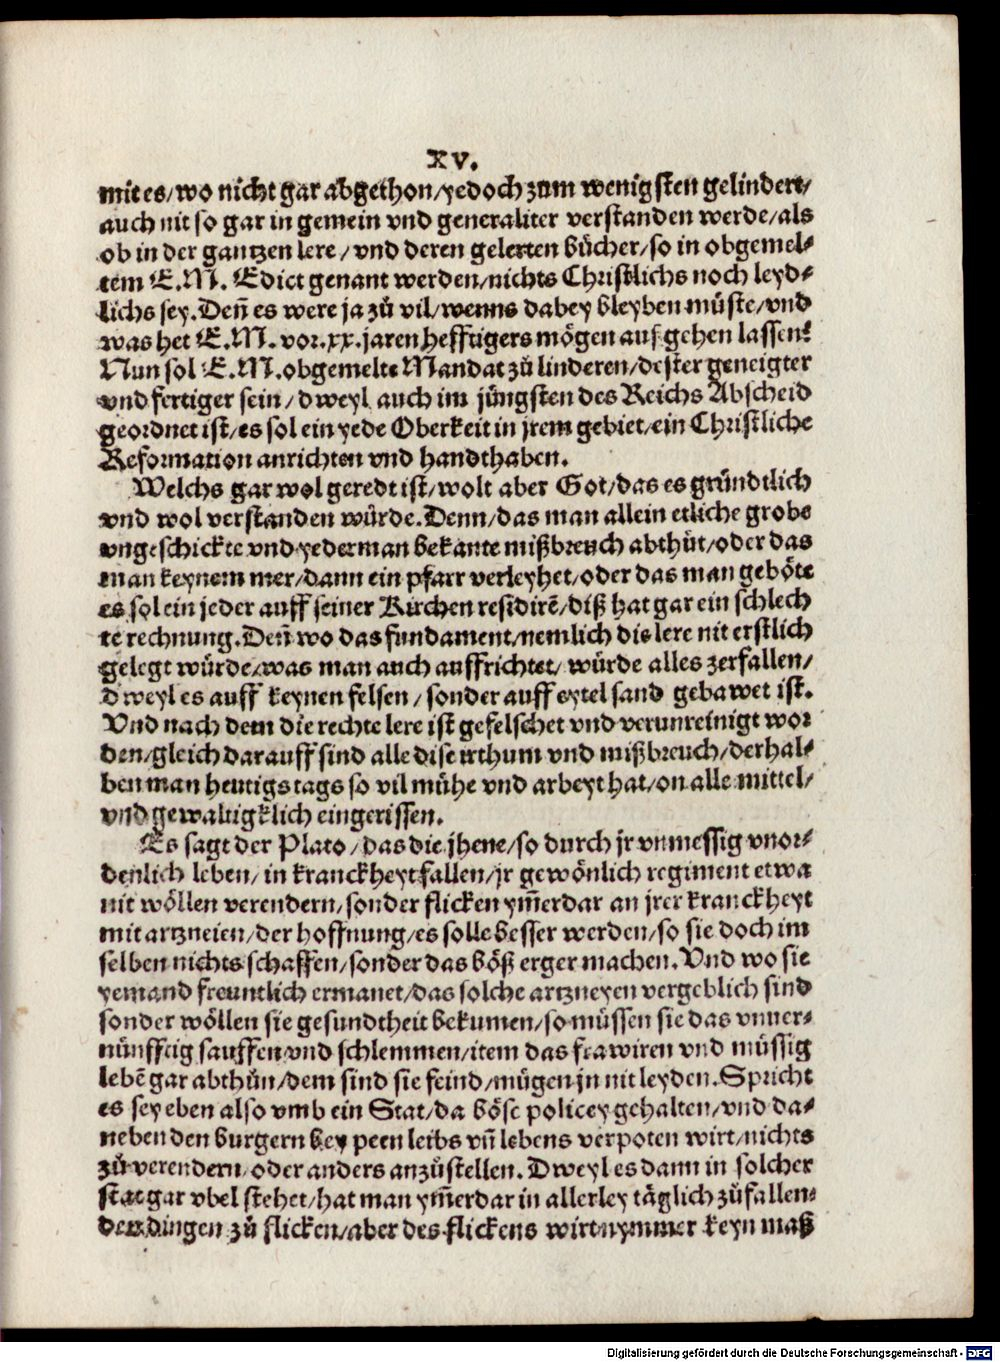 XV.
mit es/wo nicht gar abgethon/yedoch zum wenigsten gelindert/
auch nit so gar in gemein vnd generaliter verstanden werde/als
ob in der gantzen lere/vnd deren gelerten bůcher/so in obgemel⸗
tem E.M. Edict genant werden/nichts Christlichs noch leyd⸗
lichs sey. Deñ es were ja zů vil/wenns dabey bleyben můste/vnd
was het E.M. vor.xx.jaren hefftigers mögen auß gehen lassen?
Nun sol E.M.obgemelte Mandat zů linderen/dester geneigter
vnd fertiger sein/dweyl auch im jüngsten des Reichs Abscheid
geordnet ist/es sol ein yede Oberkeit in jrem gebiet/ein Christliche
Reformation anrichten vnd handthaben.
Welchs gar wol geredt ist/wolt aber Got/das es gründtlich
vnd wol verstanden würde. Denn/das man allein etliche grobe
vngeschickte vnd yederman bekante mißbreuch abthüt/oder das
man keynem mer/dann ein pfarr verleyhet/oder das man geböte
es sol ein jeder auff seiner Kirchen residirẽ/diß hat gar ein schlech
te rechnung. Deñ wo das fundament/nemlich die lere nit erstlich
gelegt würde/was man auch auffrichtet/würde alles zerfallen/
dweyl es auff keynen felsen/sonder auff eytel sand gebawet ist.
Vnd nach dem die rechte lere ist gefelschet vnd verunreinigt wor
den/gleich darauff sind alle dise irthum vnd mißbreuch/derhal⸗
ben man heutigs tags so vil mühe vnd arbeyt hat/on alle mittel/
vnd gewaltigklich eingerissen.
Es sagt der Plato/das die jhene/so durch jr vnmessig vnor⸗
denlich leben/in kranckheyt fallen/jr gewönlich regiment etwa
nit wöllen verendern/sonder flicken ym̃erdar an jrer kranckheyt
mit artzneien/der hoffnung/es solle besser werden/so sie doch im
selben nichts schaffen/sonder das böß erger machen. Vnd wo sie
yemand freuntlich ermanet/das solche artzneyen vergeblich sind
sonder wöllen sie gesundtheit bekumen/so müssen sie das vnuer⸗
nünfftig sauffen vnd schlemmen/item das frawiren vnd müssig
lebẽ gar abthůn/dem sind sie feind/mügen jn nit leyden. Spricht
es sey eben also vmb ein Stat/da böse policey gehalten/vnd da⸗
neben den burgern bey peen leibs vñ lebens verpoten wirt/nichts
zů verendern oder anders anzůstellen. Dweyl es dann in solcher
stat gar vbel stehet/hat man ym̃erdar in allerley täglich zůfallen⸗
den dingen zů flicken/aber des flickens wirt nymmer keyn maß
Digitalisierung gefördert durch die Deutsche Forschungsgemeinschaft - DFG